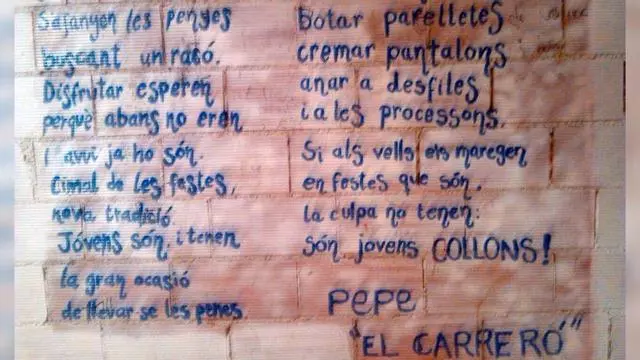 S'afanyen les penyes
buscant un racó.
Disfrutar esperen
perquè abans no eren
i avui ja ho són.
Cimal de les festes,
nova tradició.
Jóvens són, i tenen
la gran ocasió
de llevar-se les penes
botar parelletes
cremar pantalons
anar a desfiles
i a les processons.
Si als vells els maregen
en festes que són,
la culpa no tenen:
són jovens COLLONS!
PEPE
"EL CARRERÓ"